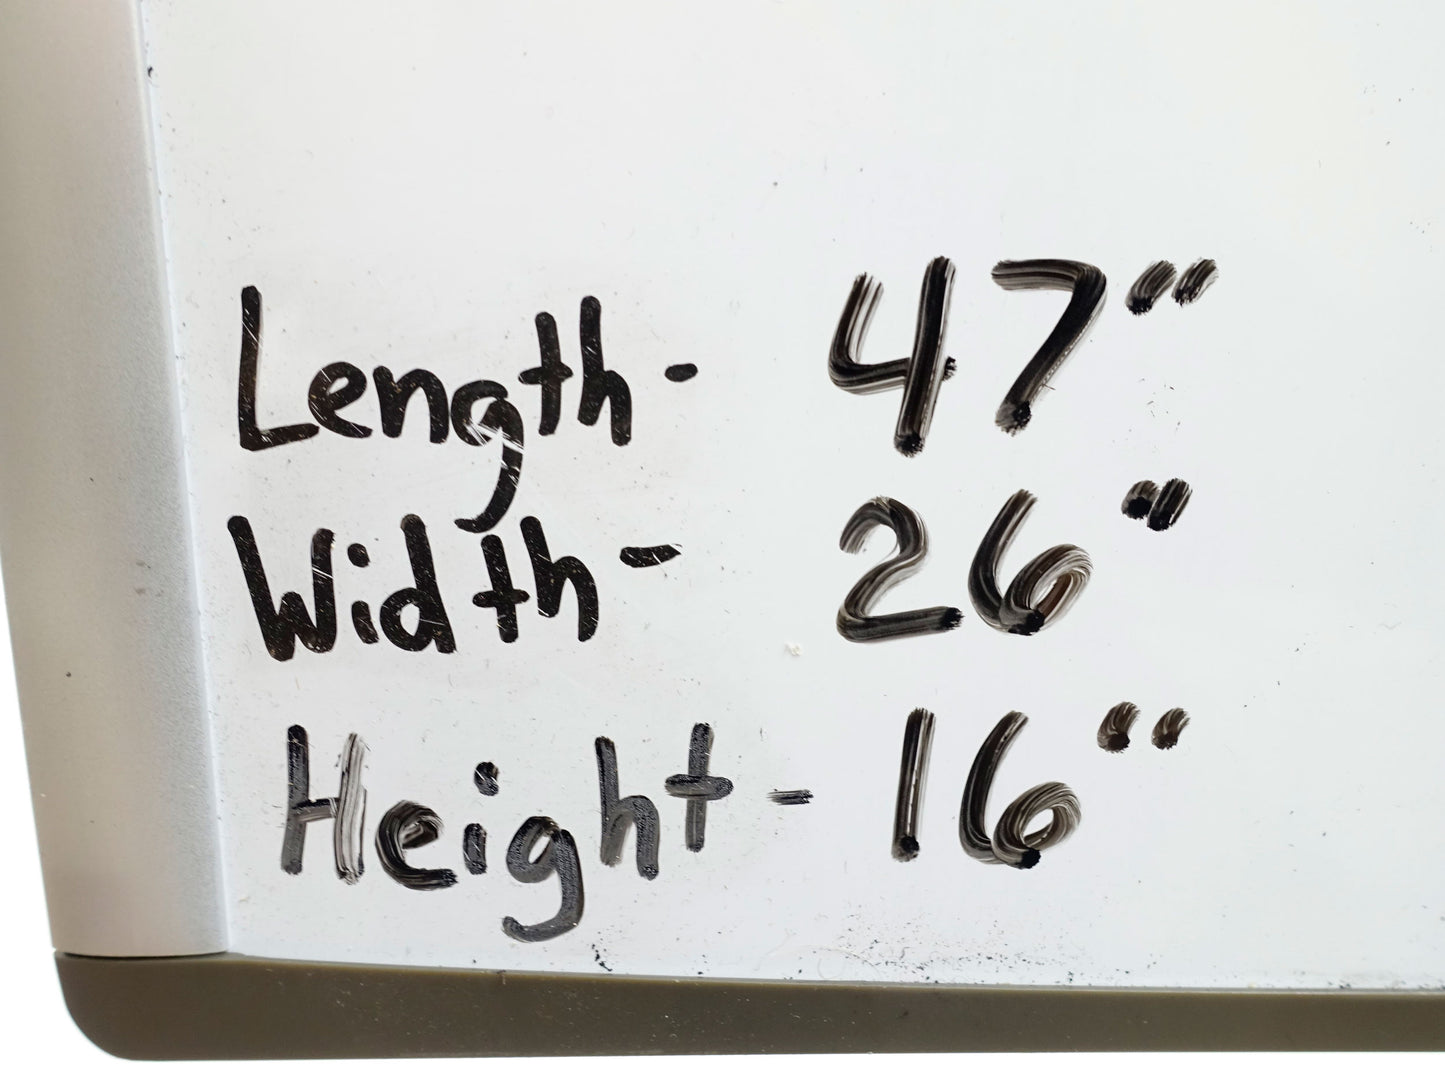 Length- 47"
Width- 26"
Height- 16"